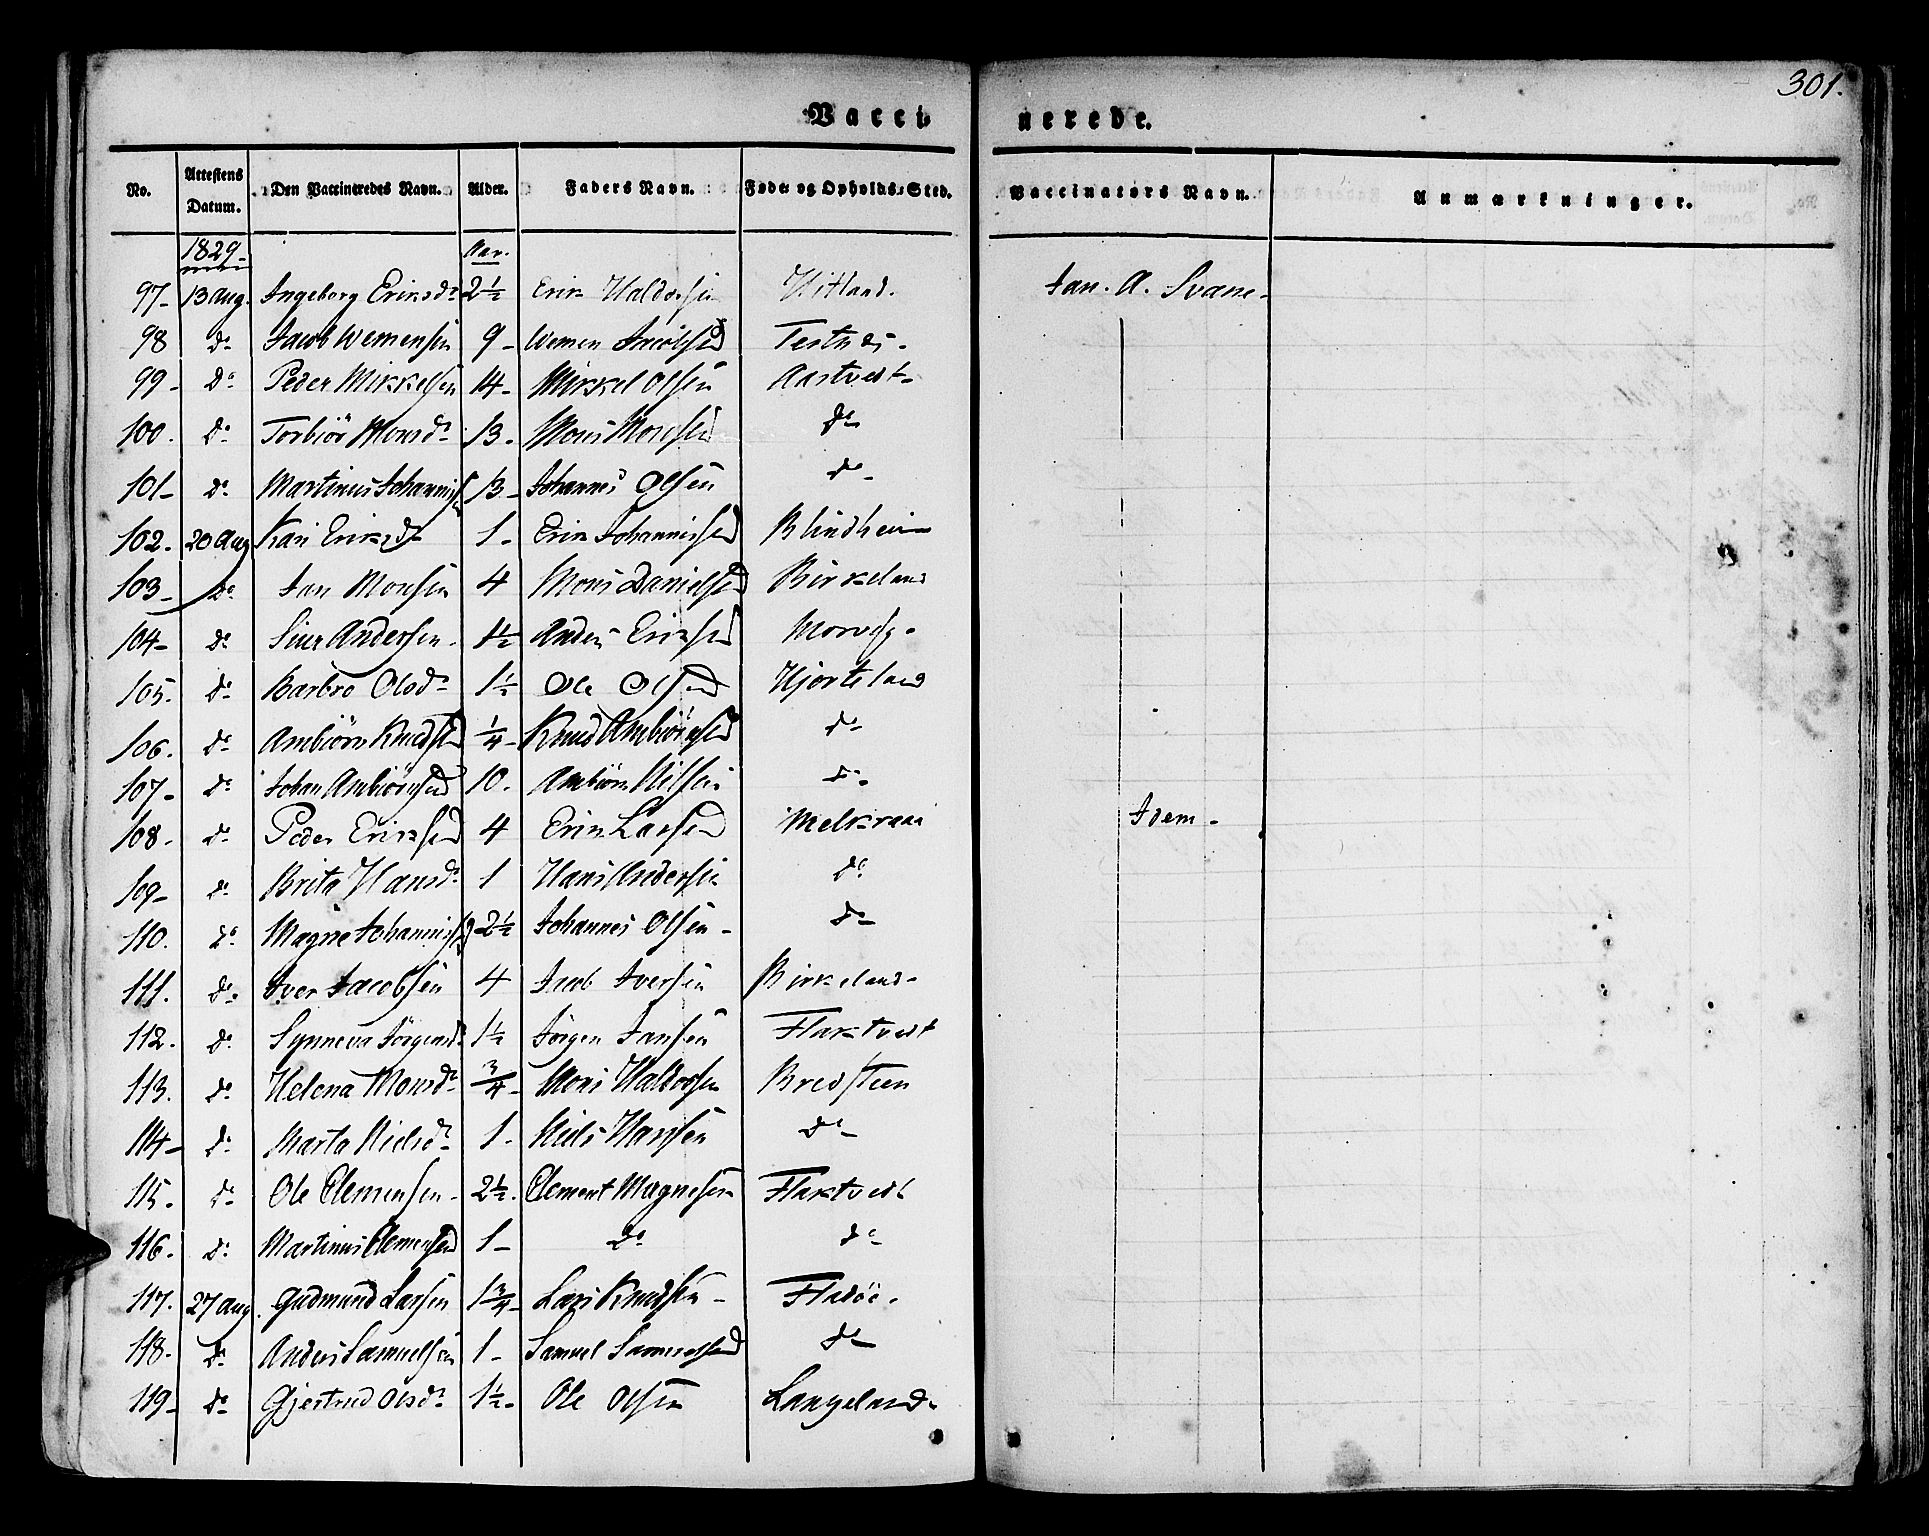 301.
Vacci nerede.
No. Attestens Datum. Den Vaccineredes Navn. Alder. Faders Navn. Føde- og Opholds-Sted. Vaccinators Navn. Anmærkninger.
1829 Aar.
97- 13 Aug. Ingeborg Eriksdr 2½ Erik Haldorsen Hitland. Jan. A. Svane-
98 do Jacob Wemensen 9- Wemen Jacobsen
99- do Peder Mikkelsen 14- Mikkel Olsen Aastvedt-
100. do Torbiør Monsdr 13. Mons Monsen do
101- do Martinus Johanness 13- Johannes Olsen do
102. 20 Aug Kari Eriksdr 1- Erik Johannessen Blindheim
103- do Jan Monsen 4 Mons Danielsen Birkeland
104- do Siur Andersen. 1½ Anders Eriksen Morvig.
105. do Barbro Olsdr 1½ Ole Olsen Hjorteland
106. do Ambiörn Knudsen ¼- Knud Ambiörnsen do
107- do Johan Ambiörnsen 10. Ambiörn Nilsen do
108- do Peder Eriksen 4 Erik Larsen Melkraan Idem-
109- do Brita Hansdr 1 Hans Andersen do
110. do Magne Johanness 2½ Johannes Olsen- do
111. do Iver Jacobsen 4 Jacob Iversen Birkeland-
112. do Synneva Jörgensdr 1½ Jörgen Jansen Flaktvedt
113. do Helena Monsdr ¾- Mons Haldorsen Bredsteen
114- do Marta Nielsdr 1. Niels Hansen do
115. do Ole Clemensen. 2½. Clement Magnesen Flaktvedt
116. do Martinus Clemensen 1- do do
117. 27 Aug. Gudmund Larsen 1¾- Lars Knudsen- Fladöe.
118. do Anders Samuelsen 1- Samuel Samuelsen do
119- do Gjertrud Olsdr 1½- Ole Olsen Langeland.